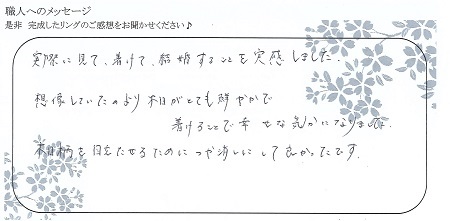 職人へのメッセージ
是非 完成したリングのご感想をお聞かせください♪
実際に見て、着けて、結婚することを実感しました。
想像していたのより木目がとても鮮やかで
着けることで幸せな気分になりました。
木目柄を目立たせるためにつや消しにして良かったです。